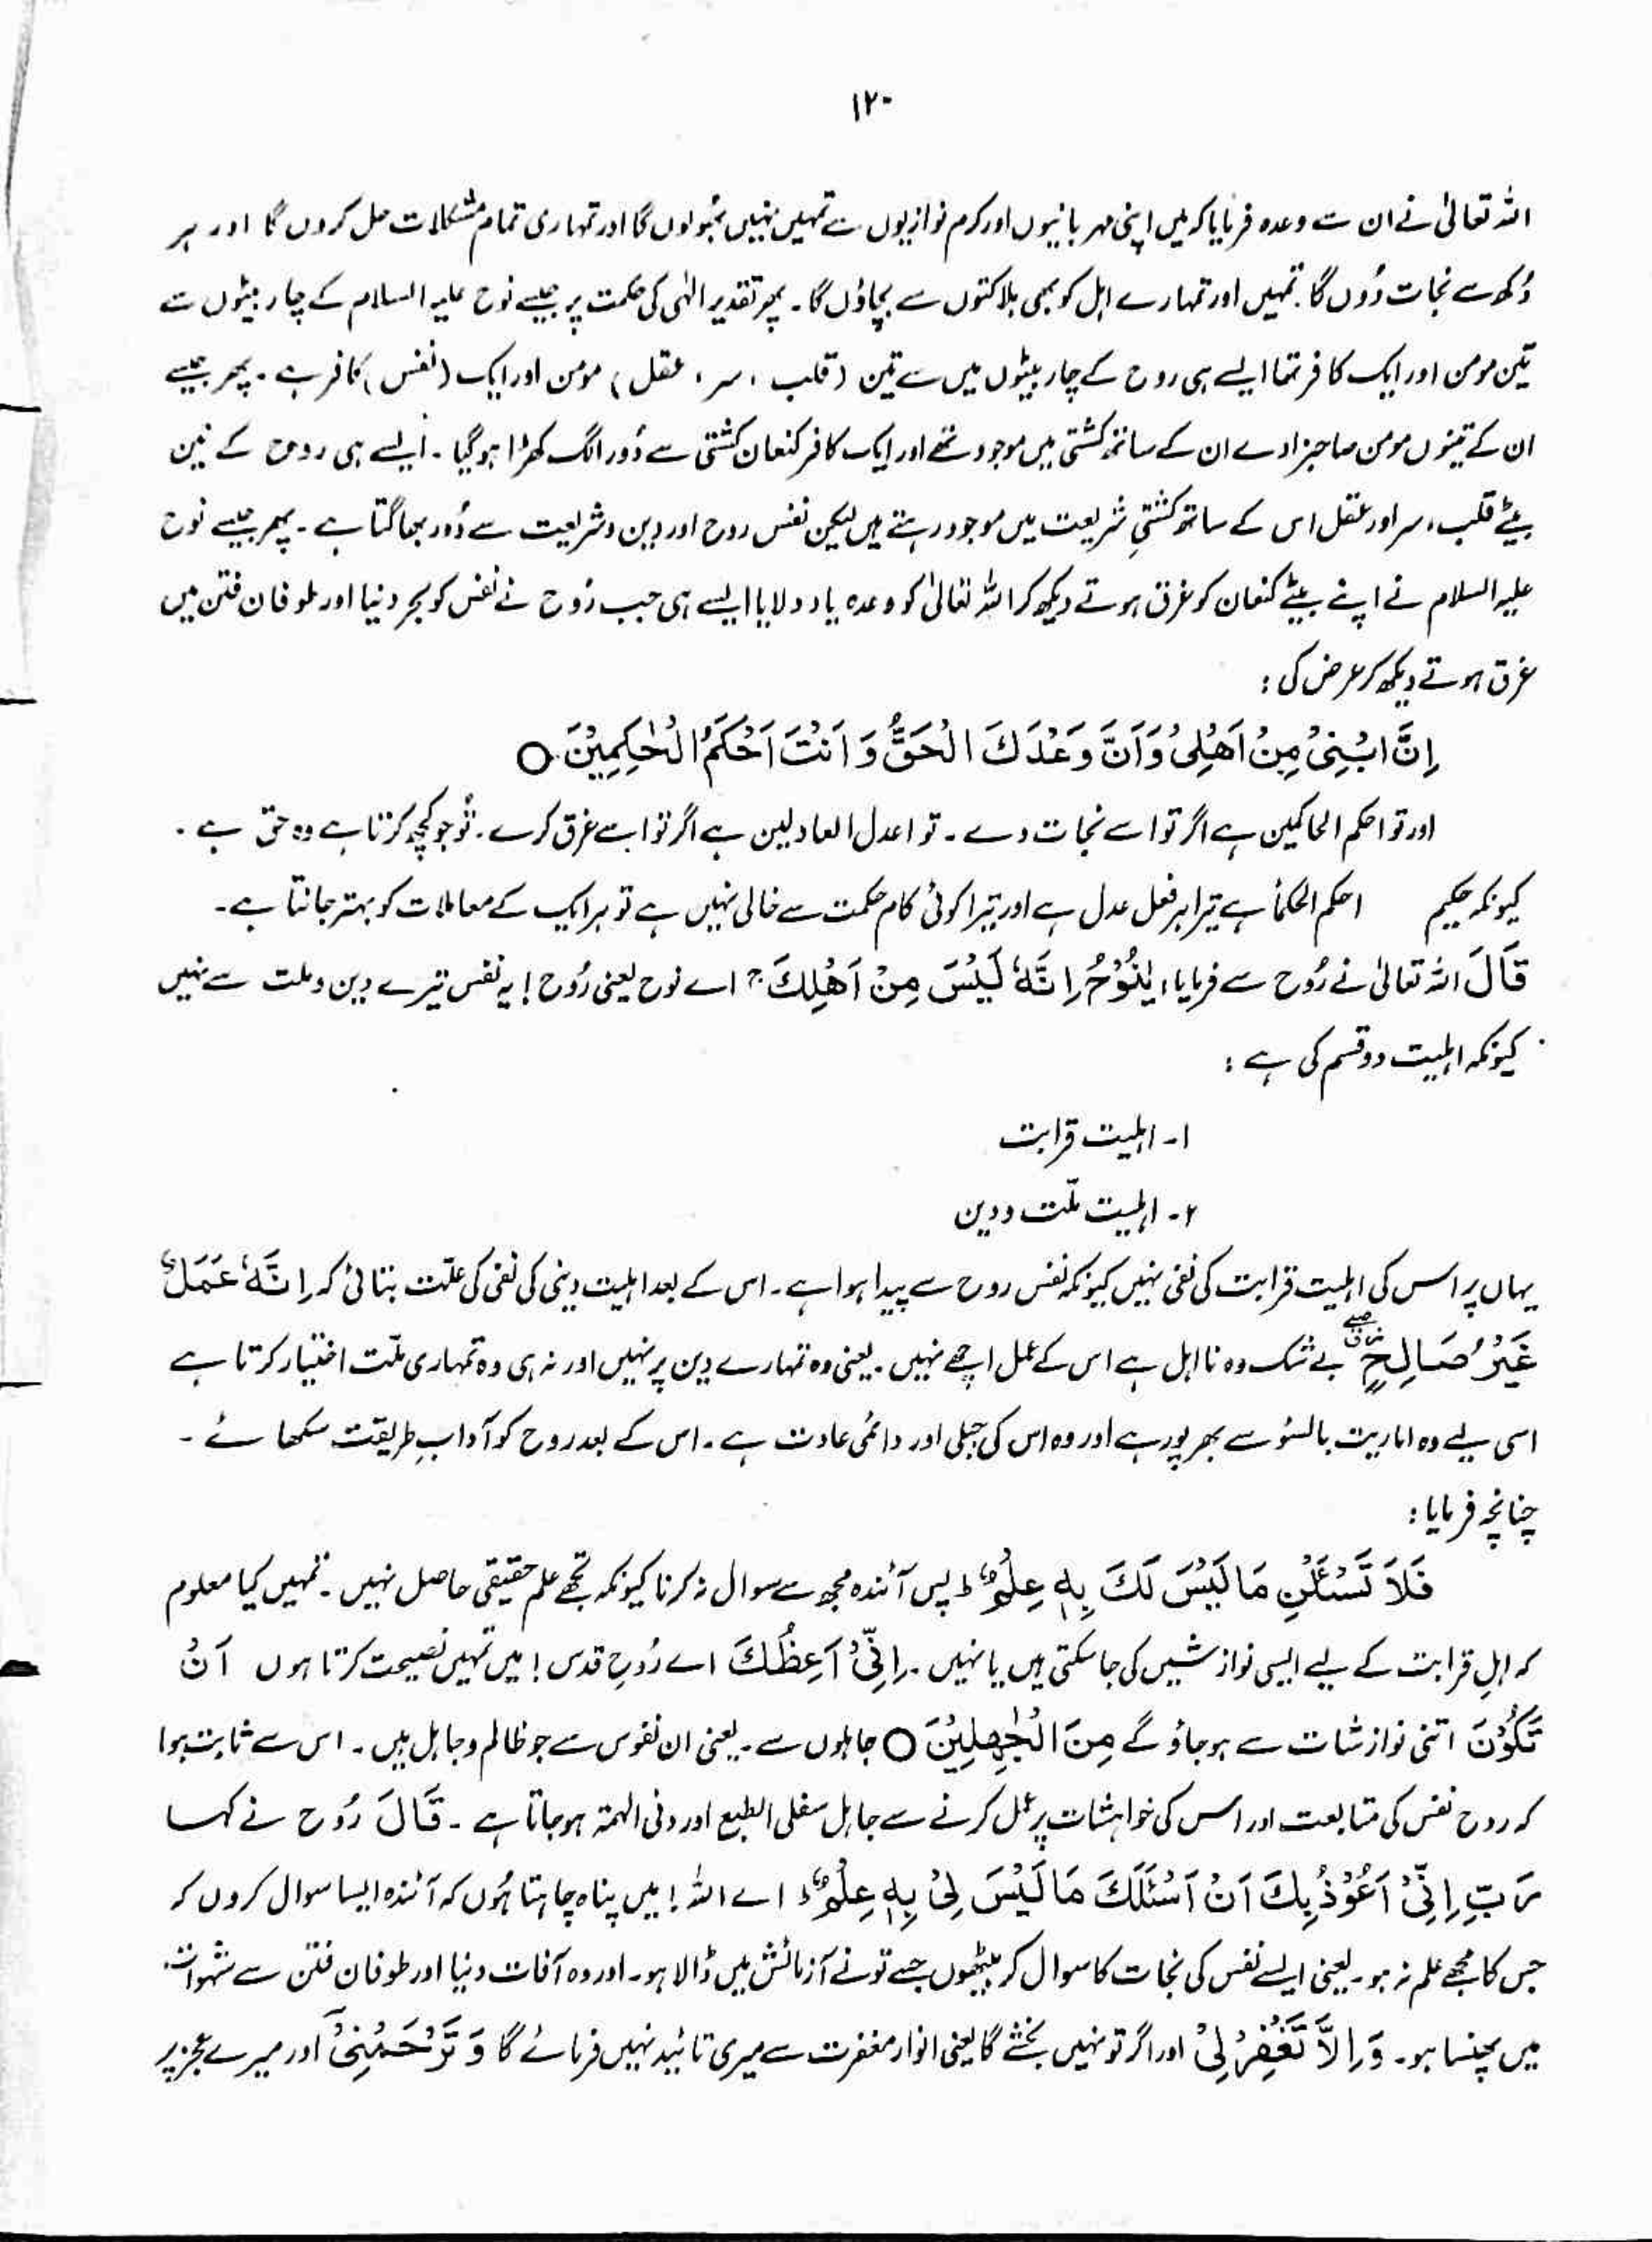 ۱۲۰
اللہ تعالیٰ نے ان سے وعدہ فرمایا کہ میں اپنی مہربانیوں اور کرم نوازیوں سے تمہیں نہیں بُھولوں گا اور تمہاری تمام مشکلات حل کروں گا اور ہر
دُکھ سے نجات دُوں گا۔ تمہیں اور تمہارے اہل کو بھی ہلاکتوں سے بچاؤں گا۔ پھر تقدیر الٰہی کی حکمت پر جیسے نوح علیہ السلام کے چار بیٹوں سے
تین مومن اور ایک کافر تھا ایسے ہی روح کے چار بیٹوں میں سے تین (قلب، سر، عقل) مومن اور ایک (نفس) کافر ہے۔ پھر جیسے
ان کے تینوں مومن صاحبزادے ان کے ساتھ کشتی میں موجود تھے اور ایک کافر کنعان کشتی سے دُور الگ کھڑا ہو گیا۔ ایسے ہی روح کے تین
بیٹے قلب، سر اور عقل اس کے ساتھ کشتیِ شریعت میں موجود رہتے ہیں لیکن نفس روح اور دین و شریعت سے دُور بھاگتا ہے۔ پھر جیسے نوح
علیہ السلام نے اپنے بیٹے کنعان کو غرق ہوتے دیکھ کر اللہ تعالیٰ کو وعدہ یاد دلایا ایسے ہی جب رُوح نے نفس کو بحر دنیا اور طوفان فتن میں
غرق ہوتے دیکھ کر عرض کی :
اِنَّ ابْنِیْ مِنْ اَهْلِیْ وَاَنَّ وَعْدَكَ الْحَقُّ وَ اَنْتَ اَحْكَمُ الْحٰكِمِیْنَ ○
اور تو احکم الحاکمین ہے اگر تو اسے نجات دے۔ تو اعدل العادلین ہے اگر تو اسے غرق کرے۔ تُو جو کچھ کرتا ہے وہ حق ہے۔
کیونکہ حکیم احکم الحکماُ ہے تیرا ہر فعل عدل ہے اور تیرا کوئی کام حکمت سے خالی نہیں ہے تو ہر ایک کے معاملات کو بہتر جانتا ہے۔
قَالَ اللہ تعالیٰ نے رُوح سے فرمایا، یٰنُوْحُ اِنَّهٗ لَیْسَ مِنْ اَهْلِكَ ۚ اے نوح یعنی رُوح! یہ نفس تیرے دین و ملت سے نہیں
کیونکہ اہلیت دو قسم کی ہے :
۱۔ اہلیت قرابت
۲۔ اہلیت ملّت و دین
یہاں پر اس کی اہلیت قرابت کی نفی نہیں کیونکہ نفس روح سے پیدا ہوا ہے۔ اس کے بعد اہلیت دینی کی نفی کی علّت بتائی کہ اِنَّهٗ عَمَلٌ
غَیْرُ صَالِحٍ بے شک وہ نا اہل ہے اس کے عمل اچھے نہیں۔ یعنی وہ تمہارے دین پر نہیں اور نہ ہی وہ تمہاری ملّت اختیار کرتا ہے
اسی لیے وہ اماریت بالسّوُ سے بھرپور ہے اور وہ اس کی جبلی اور دائمی عادت ہے۔ اس کے بعد روح کو آدابِ طریقت سکھائے۔
چنانچہ فرمایا :
فَلَا تَسْئَلْنِ مَا لَیْسَ لَكَ بِهٖ عِلْمٌ ؕ پس آئندہ مجھ سے سوال نہ کرنا کیونکہ تجھے علم حقیقی حاصل نہیں۔ تمہیں کیا معلوم
کہ اہلِ قرابت کے لیے ایسی نوازشیں کی جا سکتی ہیں یا نہیں۔ اِنِّیْۤ اَعِظُكَ اے رُوحِ قدس! میں تمہیں نصیحت کرتا ہوں اَنْ
تَكُوْنَ اتنی نوازشات سے ہو جاؤ گے مِنَ الْجٰهِلِیْنَ ○ جاہلوں سے۔ یعنی ان نفوس سے جو ظالم و جاہل ہیں۔ اس سے ثابت ہوا
کہ روح نفس کی متابعت اور اس کی خواہشات پر عمل کرنے سے جاہل سفلی الطبع اور دنی الہمۃ ہو جاتا ہے۔ قَالَ رُوح نے کہا
رَبِّ اِنِّیْۤ اَعُوْذُ بِكَ اَنْ اَسْئَلَكَ مَا لَیْسَ لِیْ بِهٖ عِلْمٌ ؕ اے اللہ! میں پناہ چاہتا ہُوں کہ آئندہ ایسا سوال کروں کہ
جس کا مجھے علم نہ ہو۔ یعنی ایسے نفس کی نجات کا سوال کر بیٹھوں جسے تو نے آزمائش میں ڈالا ہو۔ اور وہ آفات دنیا اور طوفان فتن سے شہوات
میں پھنسا ہو۔ وَ اِلَّا تَغْفِرْ لِیْ اور اگر تو نہیں بخشے گا یعنی انوار مغفرت سے میری تائید نہیں فرمائے گا وَ تَرْحَمْنِیْۤ اور میرے عجز پر